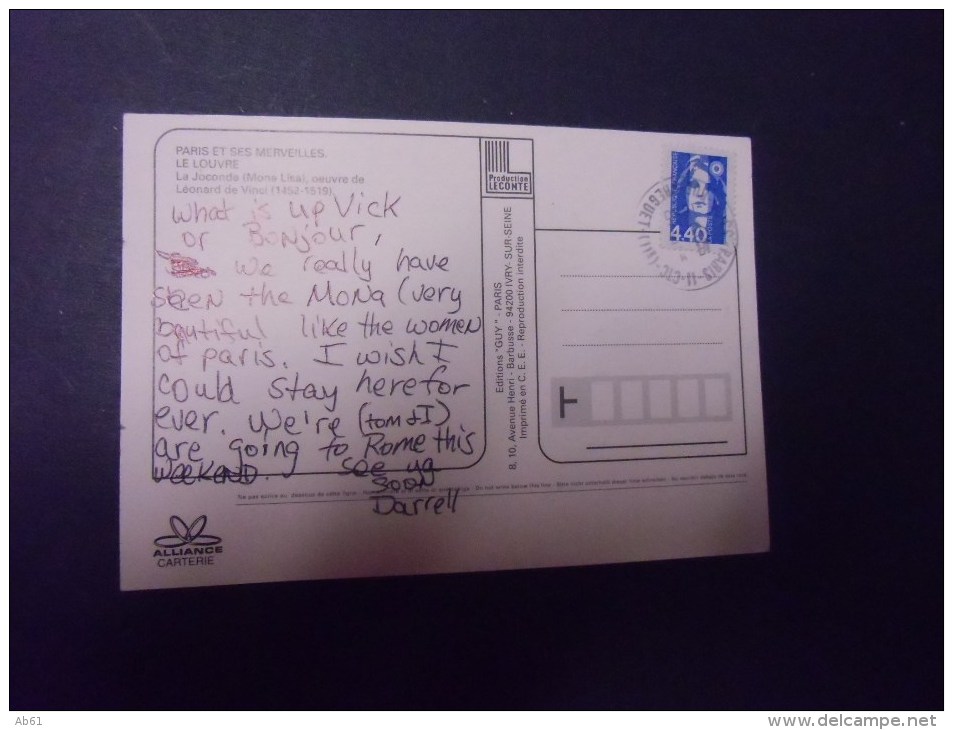 PARIS ET SES MERVEILLES.
LE LOUVRE
La Joconde (Mona Lisa), oeuvre de
Léonard de Vinci (1452-1519)
What is up Vick
or Bonjour,
We really have
seen the Mona (very
beautiful like the women
of paris. I wish I
could stay here for
ever. We're (tom & I)
are going to Rome this
weekend. see ya
soon
Darrell
Production
LECONTE
Editions "GUY" - PARIS
8, 10, Avenue Henri - Barbusse - 94200 IVRY-SUR-SEINE
Imprimé en C. E. E. - Reproduction interdite
REPUBLIQUE FRANÇAISE
4,40
LA POSTE
PARIS-11-CTC-(XI)
BREGUET-(XI)
ALLIANCE
CARTERIE
Ab61
www.delcampe.net